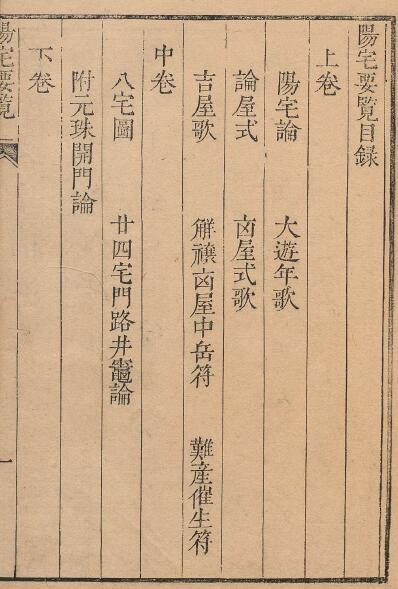 陽宅要覽目録
上卷
陽宅論 大遊年歌
論屋式 㐫屋式歌
吉屋歌 觧禳㐫屋中岳符 難産催生符
中卷
八宅圖 廿四宅門路井竈論
附元珠開門論
下卷
陽宅要覽
一